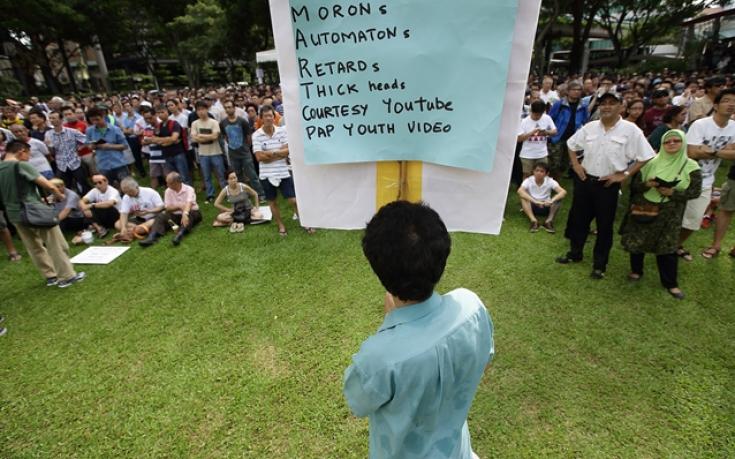 MORONs
AUTOMATONs
RETARDs
THICK heads
COURTESY YOUTUBE
PAP YOUTH VIDEO